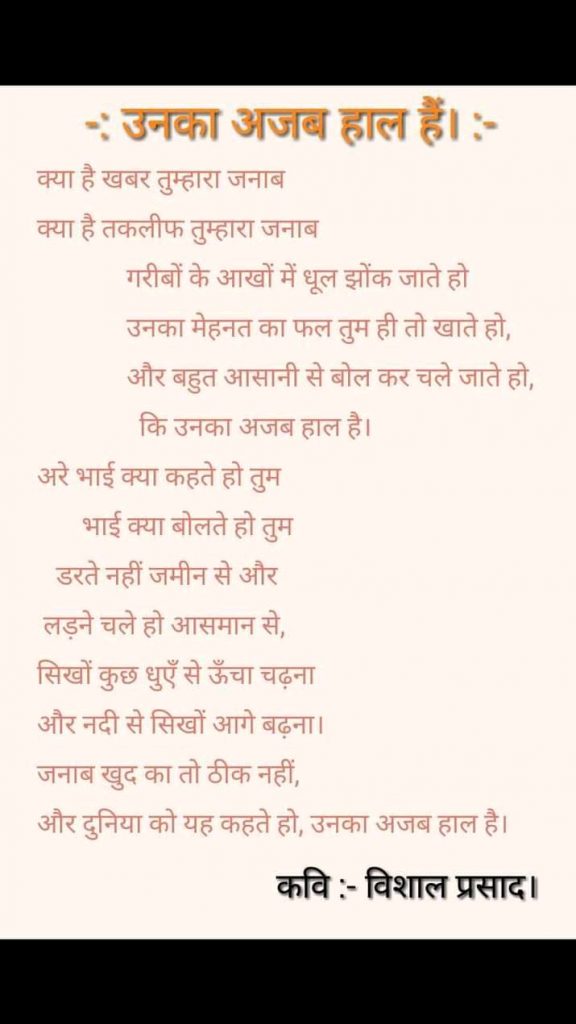 -: उनका अजब हाल हैं। :-
क्या है खबर तुम्हारा जनाब
क्या है तकलीफ तुम्हारा जनाब
गरीबों के आखों में धूल झोंक जाते हो
उनका मेहनत का फल तुम ही तो खाते हो,
और बहुत आसानी से बोल कर चले जाते हो,
कि उनका अजब हाल है।
अरे भाई क्या कहते हो तुम
भाई क्या बोलते हो तुम
डरते नहीं जमीन से और
लड़ने चले हो आसमान से,
सिखों कुछ धुएँ से ऊँचा चढ़ना
और नदी से सिखों आगे बढ़ना।
जनाब खुद का तो ठीक नहीं,
और दुनिया को यह कहते हो, उनका अजब हाल है।
कवि :- विशाल प्रसाद।